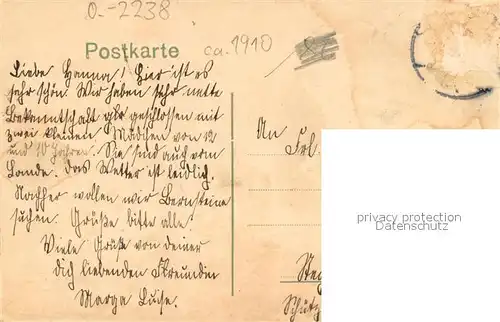 O.-2238
Postkarte
ca. 1910
Liebe Hanna! Hier ist es
sehr schön. Wir haben sehr nette
Bekanntschaft geschlossen mit
zwei kleinen Mädchen von 12
und 10 Jahren. Sie sind auch vom
Lande. Das Wetter ist leidlich.
Nachher wollen wir Bernsteine
suchen. Grüße bitte alle.
Viele Grüße von deiner
dich liebenden Freundin
Marga Luise.
An
Frl.
privacy protection
www.ansichtskartenversand.com
Steg
Schütz